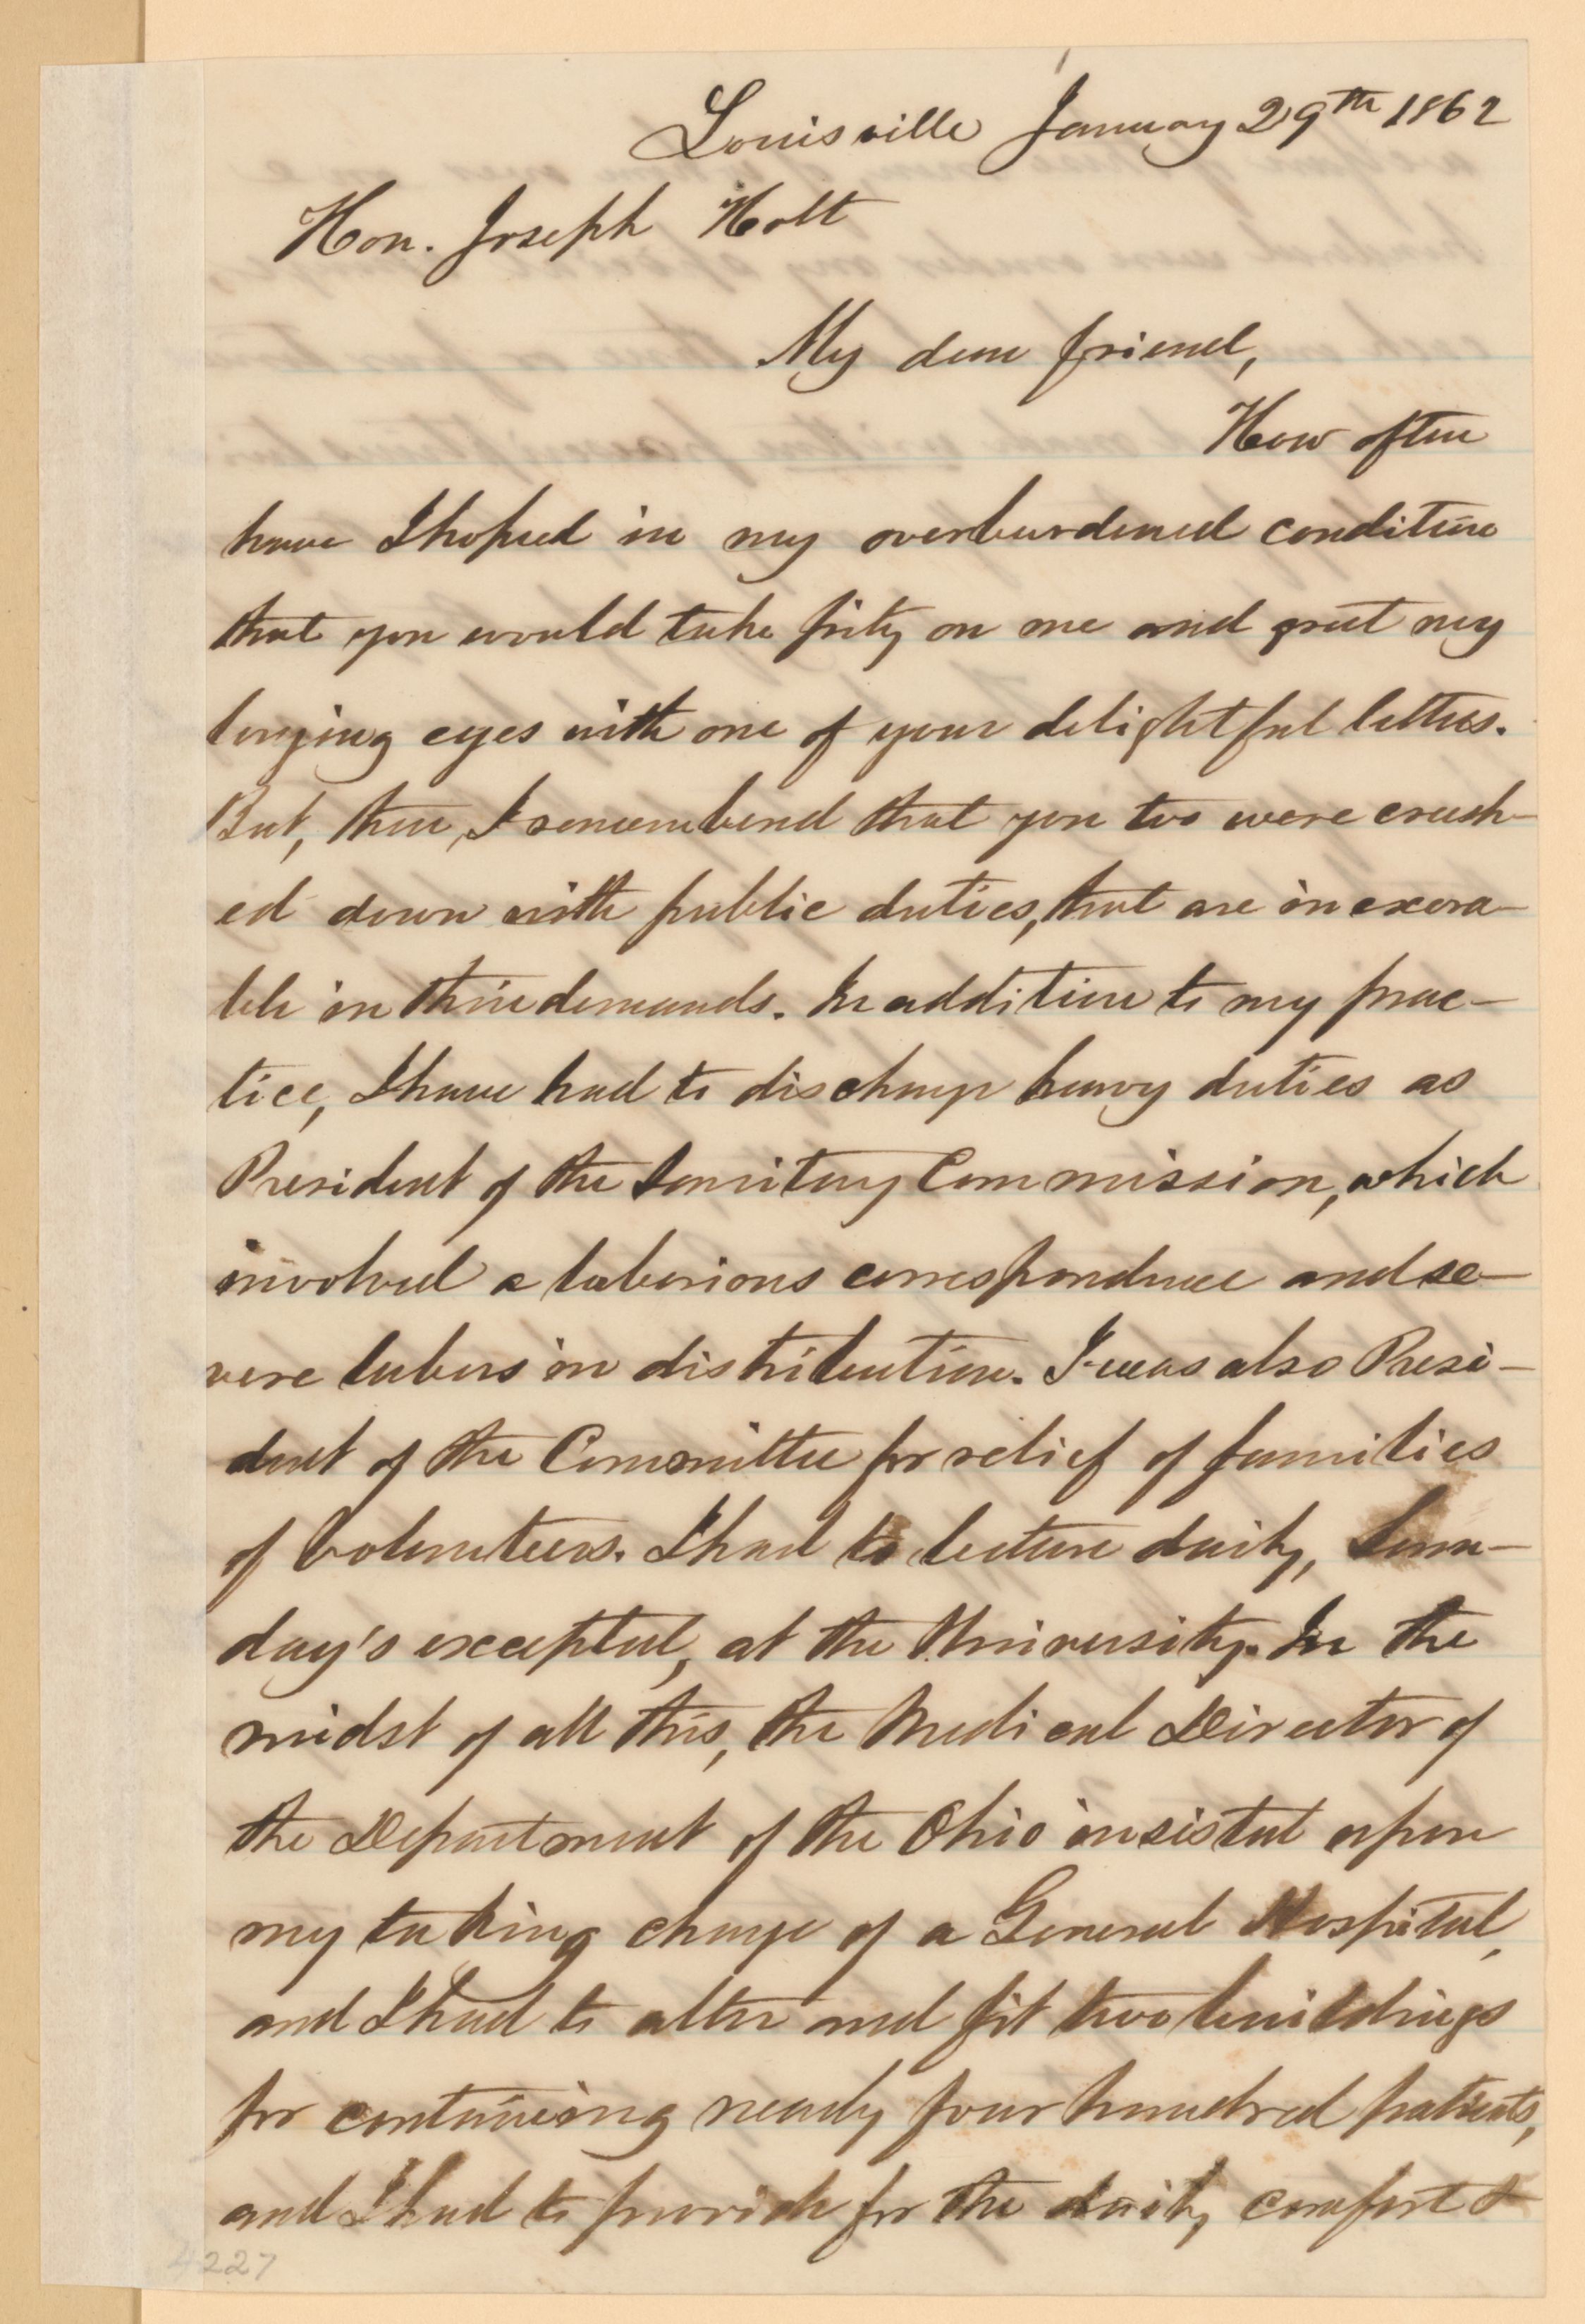 Louisville January 29th 1862
Hon. Joseph Holt
My dear friend,
How often
have I hoped in my overburdened condition
that you would take pity on me and greet my
longing eyes with one of your delightful letters.
But, then, I remembered that you too were crush-
ed down with public duties, that are inexora-
ble in their demands. In addition to my prac-
tice, I have had to discharge heavy duties as
President of the Sanitary Commission, which
involved a laborious correspondence and se-
vere labors in distribution. I was also Presi-
dent of the Committee for relief of families
of Volunteers. I had to lecture daily, Sun-
day's excepted, at the University. In the
midst of all this, the Medical Director of
the Department of the Ohio insisted upon
my taking charge of a General Hospital,
and I had to alter and fit two buildings
for containing nearly four hundred patients,
and I had to provide for the daily comfort &
4227